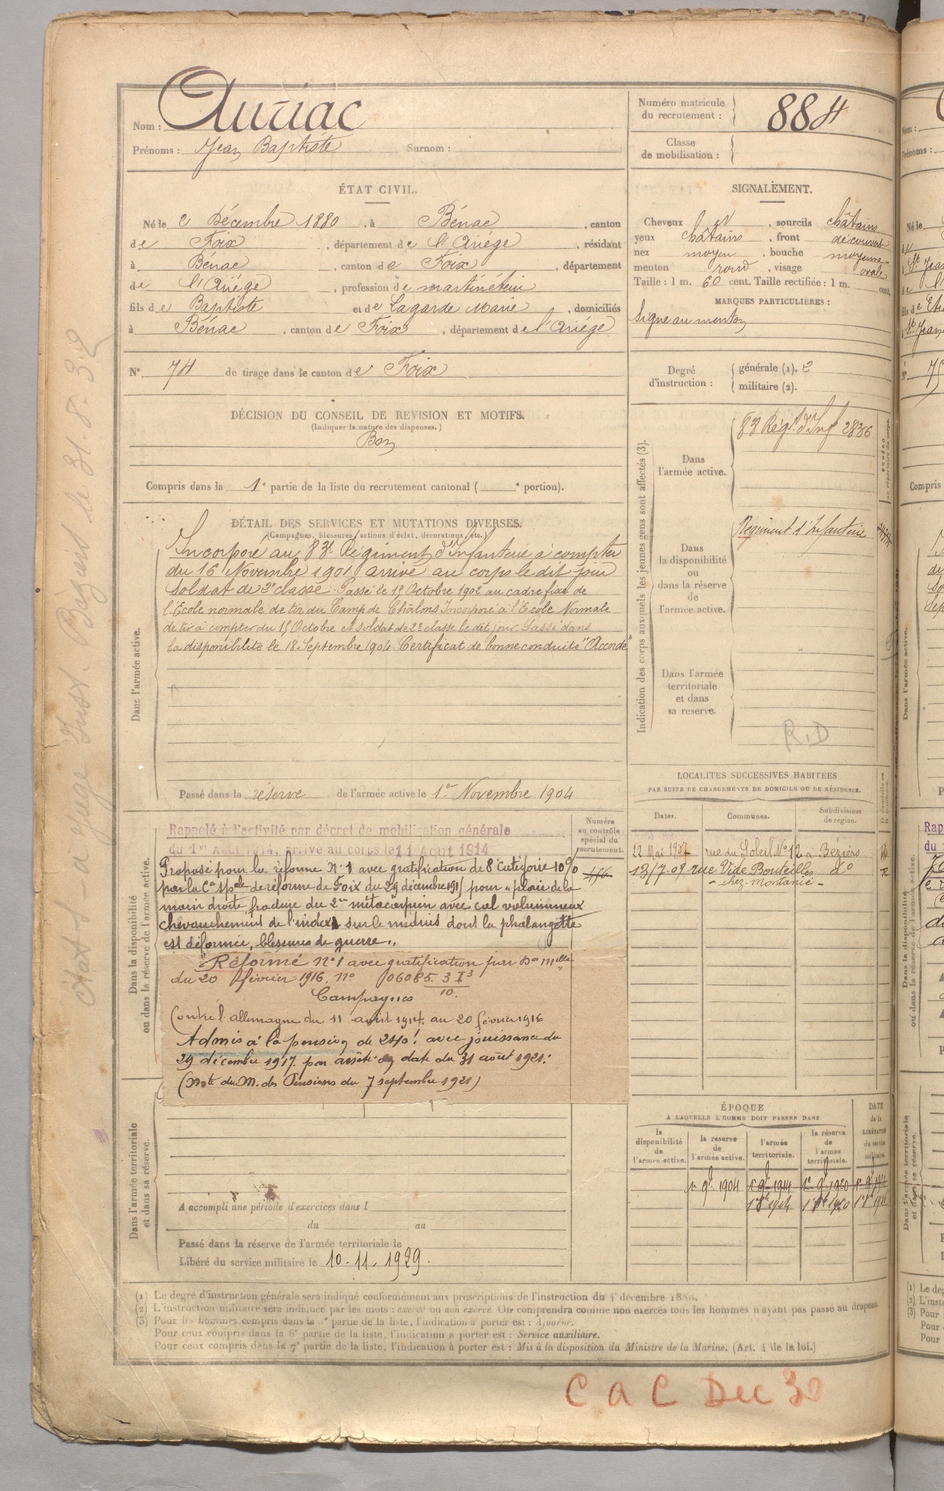 Nom : Auriac
Prénoms : Jean Baptiste Surnom :
Numéro matricule du recrutement : 884
Classe de mobilisation :
ÉTAT CIVIL.
Né le 2 Décembre 1880, à Bénac, canton
de Foix, département de l'Ariége, résidant
à Bénac, canton de Foix, département
de l'Ariége, profession de martinéteur
fils de Baptiste et de Lagarde Marie, domiciliés
à Bénac, canton de Foix, département de l'Ariége
N° 74 de tirage dans le canton de Foix
SIGNALEMENT.
Cheveux et, sourcils châtains
yeux châtains, front découvert
nez moyen, bouche moyenne
menton rond, visage ovale
Taille : 1 m. 60 cent. Taille rectifiée : 1 m. cent.
MARQUES PARTICULIÈRES :
Signe au menton
Degré d'instruction : générale (1). 2
militaire (2).
DÉCISION DU CONSEIL DE REVISION ET MOTIFS.
(Indiquer la nature des dispenses.)
Bon
Compris dans la 1e partie de la liste du recrutement cantonal ( e portion).
DÉTAIL DES SERVICES ET MUTATIONS DIVERSES.
(Campagnes, blessures, actions d'éclat, décorations, etc.)
Dans l'armée active.
Incorporé au 83e Régiment d'Infanterie à compter
du 16 Novembre 1901 arrivé au corps le dit jour
soldat de 2e classe. Passé le 15 Octobre 1902 au cadre fixe de
l'Ecole normale de tir du Camp de Châlons Incorporé à l'Ecole Normale
de tir à compter du 15 Octobre et soldat de 2e classe le dit jour Passé dans
la disponibilité le 18 Septembre 1904 Certificat de bonne conduite "Accordé"
Passé dans la réserve de l'armée active le 1er Novembre 1904
Indication des corps auxquels les jeunes gens sont affectés (3).
Dans l'armée active.
83 Régt d'Inf 2836
Dans la disponibilité ou dans la réserve de l'armée active.
Régiment d'Infanterie
Dans l'armée territoriale et dans sa réserve.
R.D
LOCALITÉS SUCCESSIVES HABITÉES
PAR SUITE DE CHANGEMENTS DE DOMICILE OU DE RÉSIDENCE.
Dates. Communes. Subdivisions de région.
22 Mai 1907 rue du Soleil N° 12 à Béziers
13/7.09 rue Vide Bouteilles do
- chez montanié -
Dans la disponibilité ou dans la réserve de l'armée active.
Numéro au contrôle spécial du recrutement.
Rappelé à l'activité par décret de mobilisation générale
du 1er Août 1914, arrivé au corps le 11 Août 1914
Proposé pour la réforme N° 1 avec gratification de 8e Catégorie 10%
par la Con Spale de réforme de Foix du 29 décembre 1915 pour "plaie de la
main droite fracture du 2me métacarpien avec cal volumineux
chevauchement de l'index sur le médius dont la phalangette
est déformée, blessures de guerre".
Réformé N° 1 avec gratification par Don Mlle
du 20 février 1916. N°
Campagnes
Contre l'allemagne du 11 août 1914 au 20 février 1916
Admis à la pension de 240f avec jouissance du
29 décembre 1917 par arrêté en date du 31 août 1921.
(Note du M. des Pensions du 7 septembre 1921)
Dans l'armée territoriale et dans sa réserve.
A accompli une période d'exercices dans l
du au
Passé dans la réserve de l'armée territoriale le
Libéré du service militaire le 10.11.1929.
ÉPOQUE
À LAQUELLE L'HOMME DOIT PASSER DANS
la disponibilité de l'armée active. la réserve de l'armée active. l'armée territoriale. la réserve de l'armée territoriale. DATE de la LIBÉRATION du service militaire.
(1) Le degré d'instruction générale sera indiqué conformément aux prescriptions de l'instruction du 4 décembre 1889.
(2) L'instruction militaire sera indiquée par les mots : exercé ou non exercé. On comprendra comme non exercés tous les hommes n'ayant pas passé au drapeau
(3) Pour les hommes compris dans la 4e partie de la liste, l'indication à porter est : Ajourné.
Pour ceux compris dans la 6e partie de la liste, l'indication à porter est : Service auxiliaire.
Pour ceux compris dans la 7e partie de la liste, l'indication à porter est : Mis à la disposition du Ministre de la Marine. (Art. 4 de la loi.)
C a C Dec 30